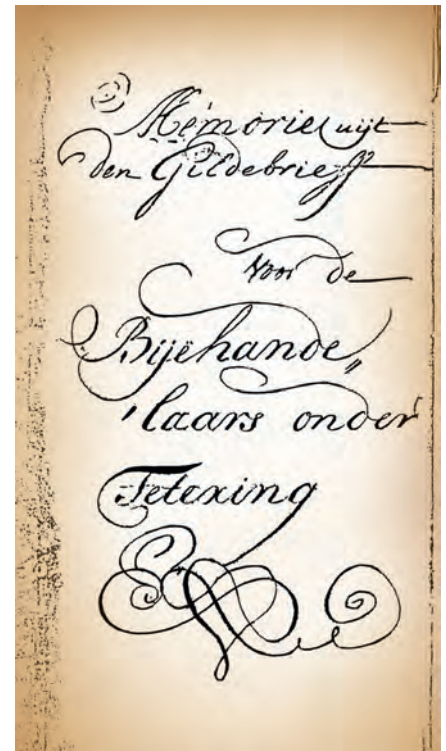 Memorie uijt
den Gildebrieff
Voor de
Bijehande„
'laars onder
Tetexing